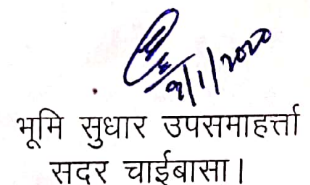 9/1/2020
भूमि सुधार उपसमाहर्त्ता
सदर चाईबासा।